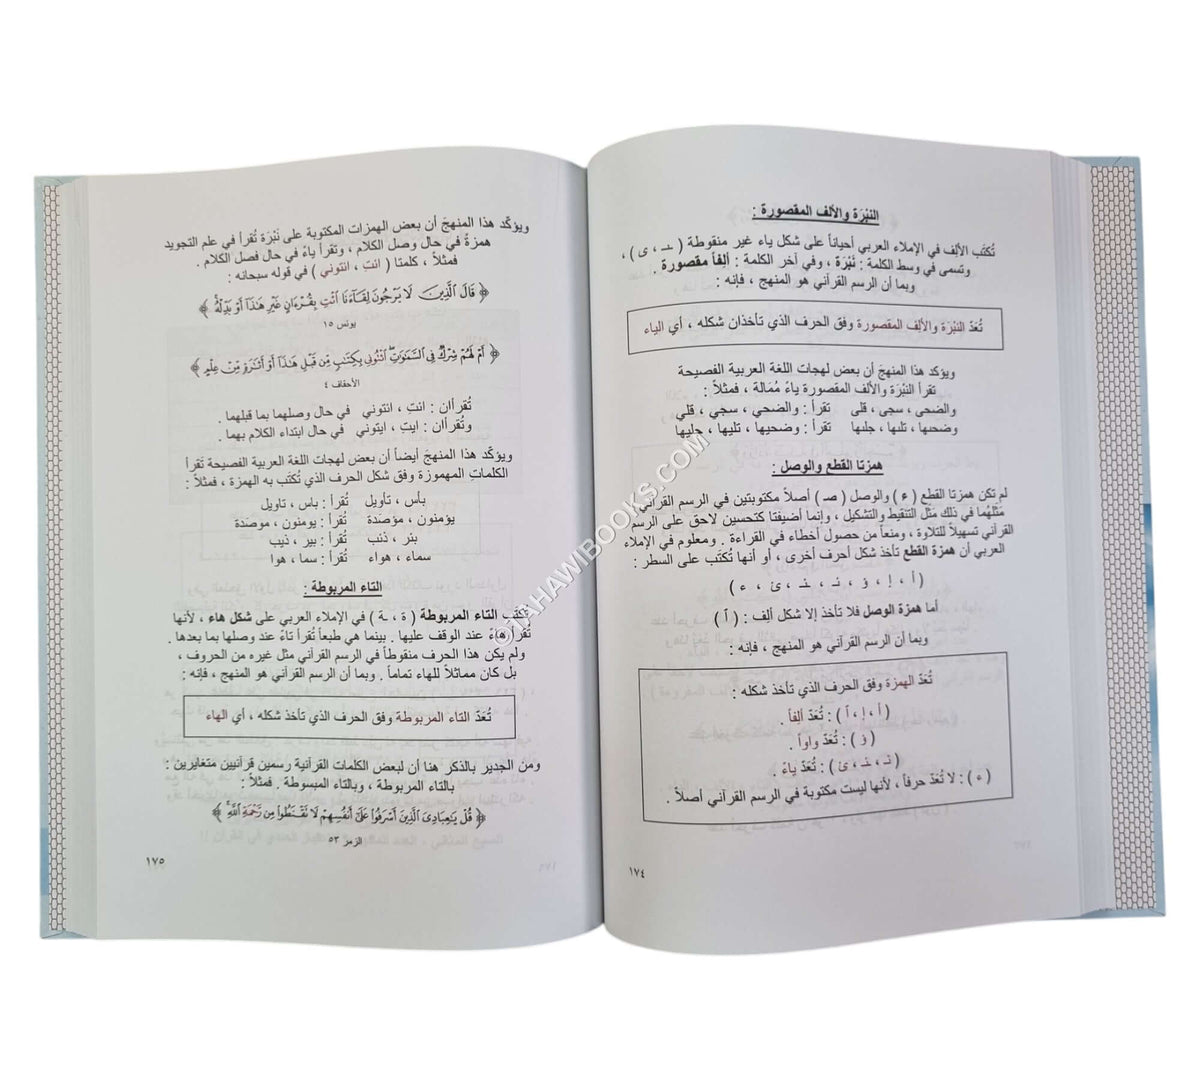 النبْرَة والألف المقصورة :
تُكتَب الألِف في الإملاء العربي أحياناً على شكل ياء غير منقوطة ( ـىـ ، ى ) ،
وتسمى في وسط الكلمة : نَبْرَة ، وفي آخر الكلمة : ألِفاً مقصورة .
وبما أن الرسم القرآني هو المنهج ، فإنه :
تُعَدّ النبْرَة والألِف المقصورة وفق الحرف الذي تأخذان شكله ، أي الياء
ويؤكد هذا المنهجَ أن بعض لهجات اللغة العربية الفصيحة
تقرأ النبْرَة والألف المقصورة ياءً مُمَالة ، فمثلاً :
والضحى ، سجى ، قلى تقرأ : والضحي ، سجي ، قلي
وضحىها ، تلىها ، جلىها تقرأ : وضحيها ، تليها ، جليها
همزتا القطع والوصل :
لم تكن همزتا القطع ( ء ) والوصل ( صـ ) أصلاً مكتوبتين في الرسم القرآني
مَثَلُهُما في ذلك مَثَل التنقيط والتشكيل ، وإنما أضيفتا كتحسين لاحق على الرسم
القرآني تسهيلاً للتلاوة ، ومنعاً من حصول أخطاء في القراءة . ومعلوم في الإملاء
العربي أن همزة القطع تأخذ شكل أحرف أخرى ، أو أنها تُكتَب على السطر :
( أ ، إ ، ؤ ، ئـ ، ـئـ ، ئ ، ء )
أما همزة الوصل فلا تأخذ إلا شكل ألِف : ( ٱ )
وبما أن الرسم القرآني هو المنهج ، فإنه :
تُعَدّ الهمزة وفق الحرف الذي تأخذ شكله :
( أ ، إ ، ٱ ) : تُعَدّ ألِفاً .
( ؤ ) : تُعَدّ واواً .
( ئـ ، ـئـ ، ئ ) : تُعَدّ ياءً .
( ء ) : لا تُعَدّ حرفاً ، لأنها ليست مكتوبة في الرسم القرآني أصلاً .
١٧٤
ويؤكّد هذا المنهجَ أن بعض الهمزات المكتوبة على نَبْرَة تُقرأ في علم التجويد
همزةً في حال وصل الكلام ، وتقرأ ياءً في حال فصل الكلام .
فمثلاً ، كلمتا ( ائتِ ، ائتوني ) في قوله سبحانه :
﴿ قَالَ ٱلَّذِينَ لَا يَرْجُونَ لِقَآءَنَا ٱئْتِ بِقُرْءَانٍ غَيْرِ هَٰذَآ أَوْ بَدِّلْهُ ﴾
يونس ١٥
﴿ أَمْ لَهُمْ شِرْكٌ فِى ٱلسَّمَٰوَٰتِ ٱئْتُونِى بِكِتَٰبٍ مِّن قَبْلِ هَٰذَآ أَوْ أَثَٰرَةٍ مِّنْ عِلْمٍ ﴾
الأحقاف ٤
تُقرأان : ائتِ ، ائتوني في حال وصلهما بما قبلهما .
وتُقرأان : ايتِ ، ايتوني في حال ابتداء الكلام بهما .
ويؤكد هذا المنهجَ أيضاً أن بعض لهجات اللغة العربية الفصيحة تَقرأ
الكلماتِ المهموزة وفق شكل الحرف الذي تُكتَب به الهمزة ، فمثلاً :
بأس ، تأويل تُقرأ : باس ، تاويل
يؤمنون ، مؤصَدة تُقرأ : يومنون ، موصَدة
بئر ، ذئب تُقرأ : بير ، ذيب
سماء ، هواء تُقرأ : سما ، هوا
التاء المربوطة :
تُكتَب التاء المربوطة ( ة ، ـة ) في الإملاء العربي على شكل هاء ، لأنها
تُقرأ هاءً عند الوقف عليها . بينما هي طبعاً تُقرأ تاءً عند وصلها بما بعدها .
ولم يكن هذا الحرف منقوطاً في الرسم القرآني مثل غيره من الحروف ،
بل كان مماثلاً للهاء تماماً . وبما أن الرسم القرآني هو المنهج ، فإنه :
تُعَدّ التاء المربوطة وفق الحرف الذي تأخذ شكله ، أي الهاء
ومن الجدير بالذكر هنا أن لبعض الكلمات القرآنية رسمين قرآنيين متغايرين :
بالتاء المربوطة ، وبالتاء المبسوطة . فمثلاً :
﴿ قُلْ يَٰعِبَادِىَ ٱلَّذِينَ أَسْرَفُوا۟ عَلَىٰٓ أَنفُسِهِمْ لَا تَقْنَطُوا۟ مِن رَّحْمَةِ ٱللَّهِ ﴾
الزمر ٥٣
١٧٥
TAHAWIBOOKS.COM